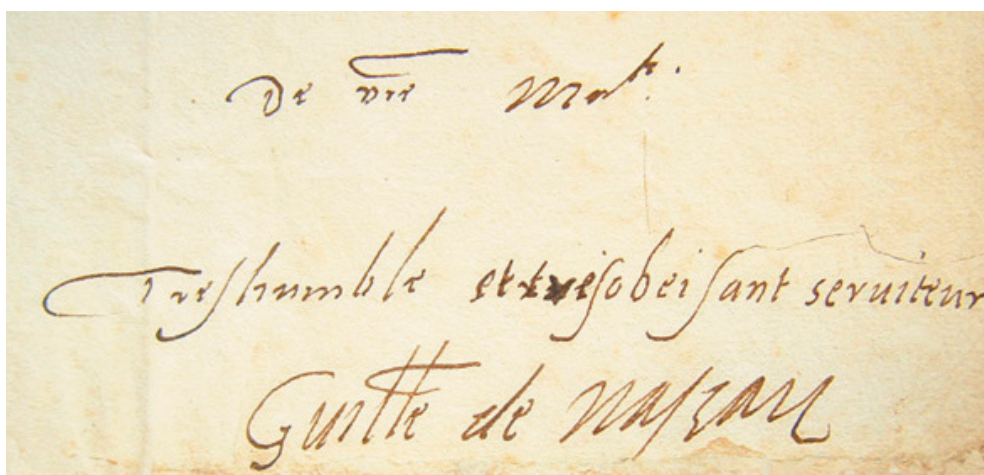 De vre Ma.te
Treshumble et tresobeissant seruiteur
Guille de Nassau